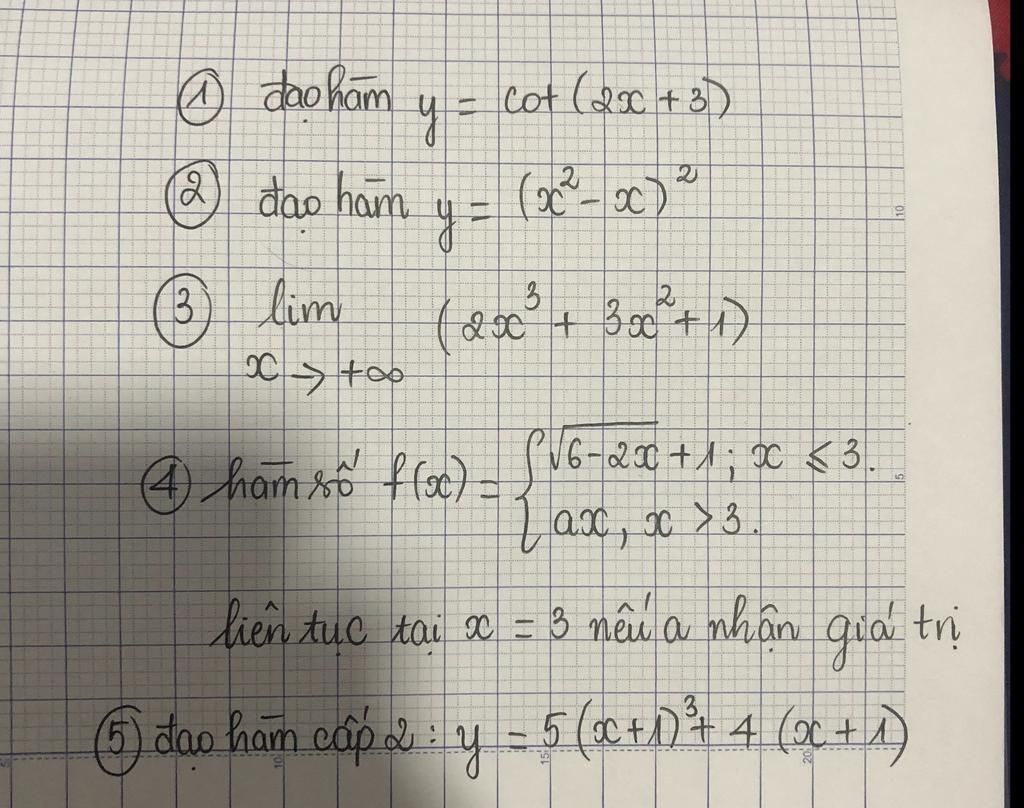 ① đạo hàm y = cot(2x + 3)
② đạo hàm y = (x² - x)²
③ lim (2x³ + 3x² + 1)
x → +∞
④ hàm số f(x) = { √(6-2x) + 1 ; x ≤ 3.
ax, x > 3.
liên tục tại x = 3 nếu a nhận giá trị
⑤ đạo hàm cấp 2 : y = 5(x+1)³ + 4(x+1)
10
5
5
10
15
20